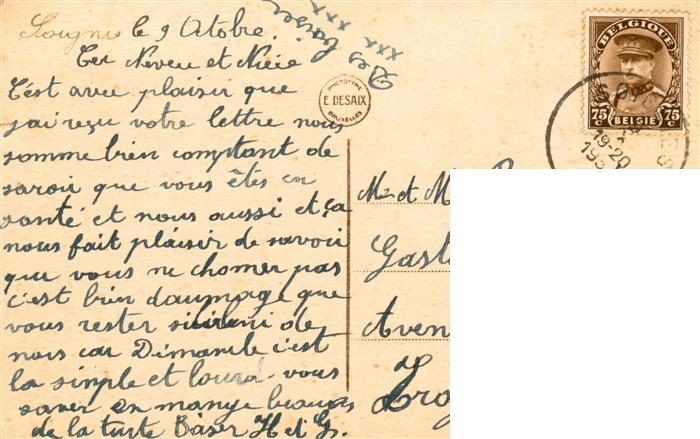 Soignies le 9 Otobre.
Des baiser
xxx xxx
Cer Neveu et Nièce
C'est avec plaisir que
jai reçu votre lettre nous
somme bien comptant de
savoir que vous êtes en
santé et nous aussi et ça
nous fait plaisir de savoir
que vous ne chomer pas
c'est bien daumage que
vous rester si loin de
nous car Dimanche c'est
la sinple et lourd vous
saver on mange beaucous
de la tarte Baser H et G.
PHOTOTYPIE
E. DESAIX
BRUXELLES
BELGIQUE
75 C 75 C
BELGIË
19-20
193
Mr et M
Gast
Aven